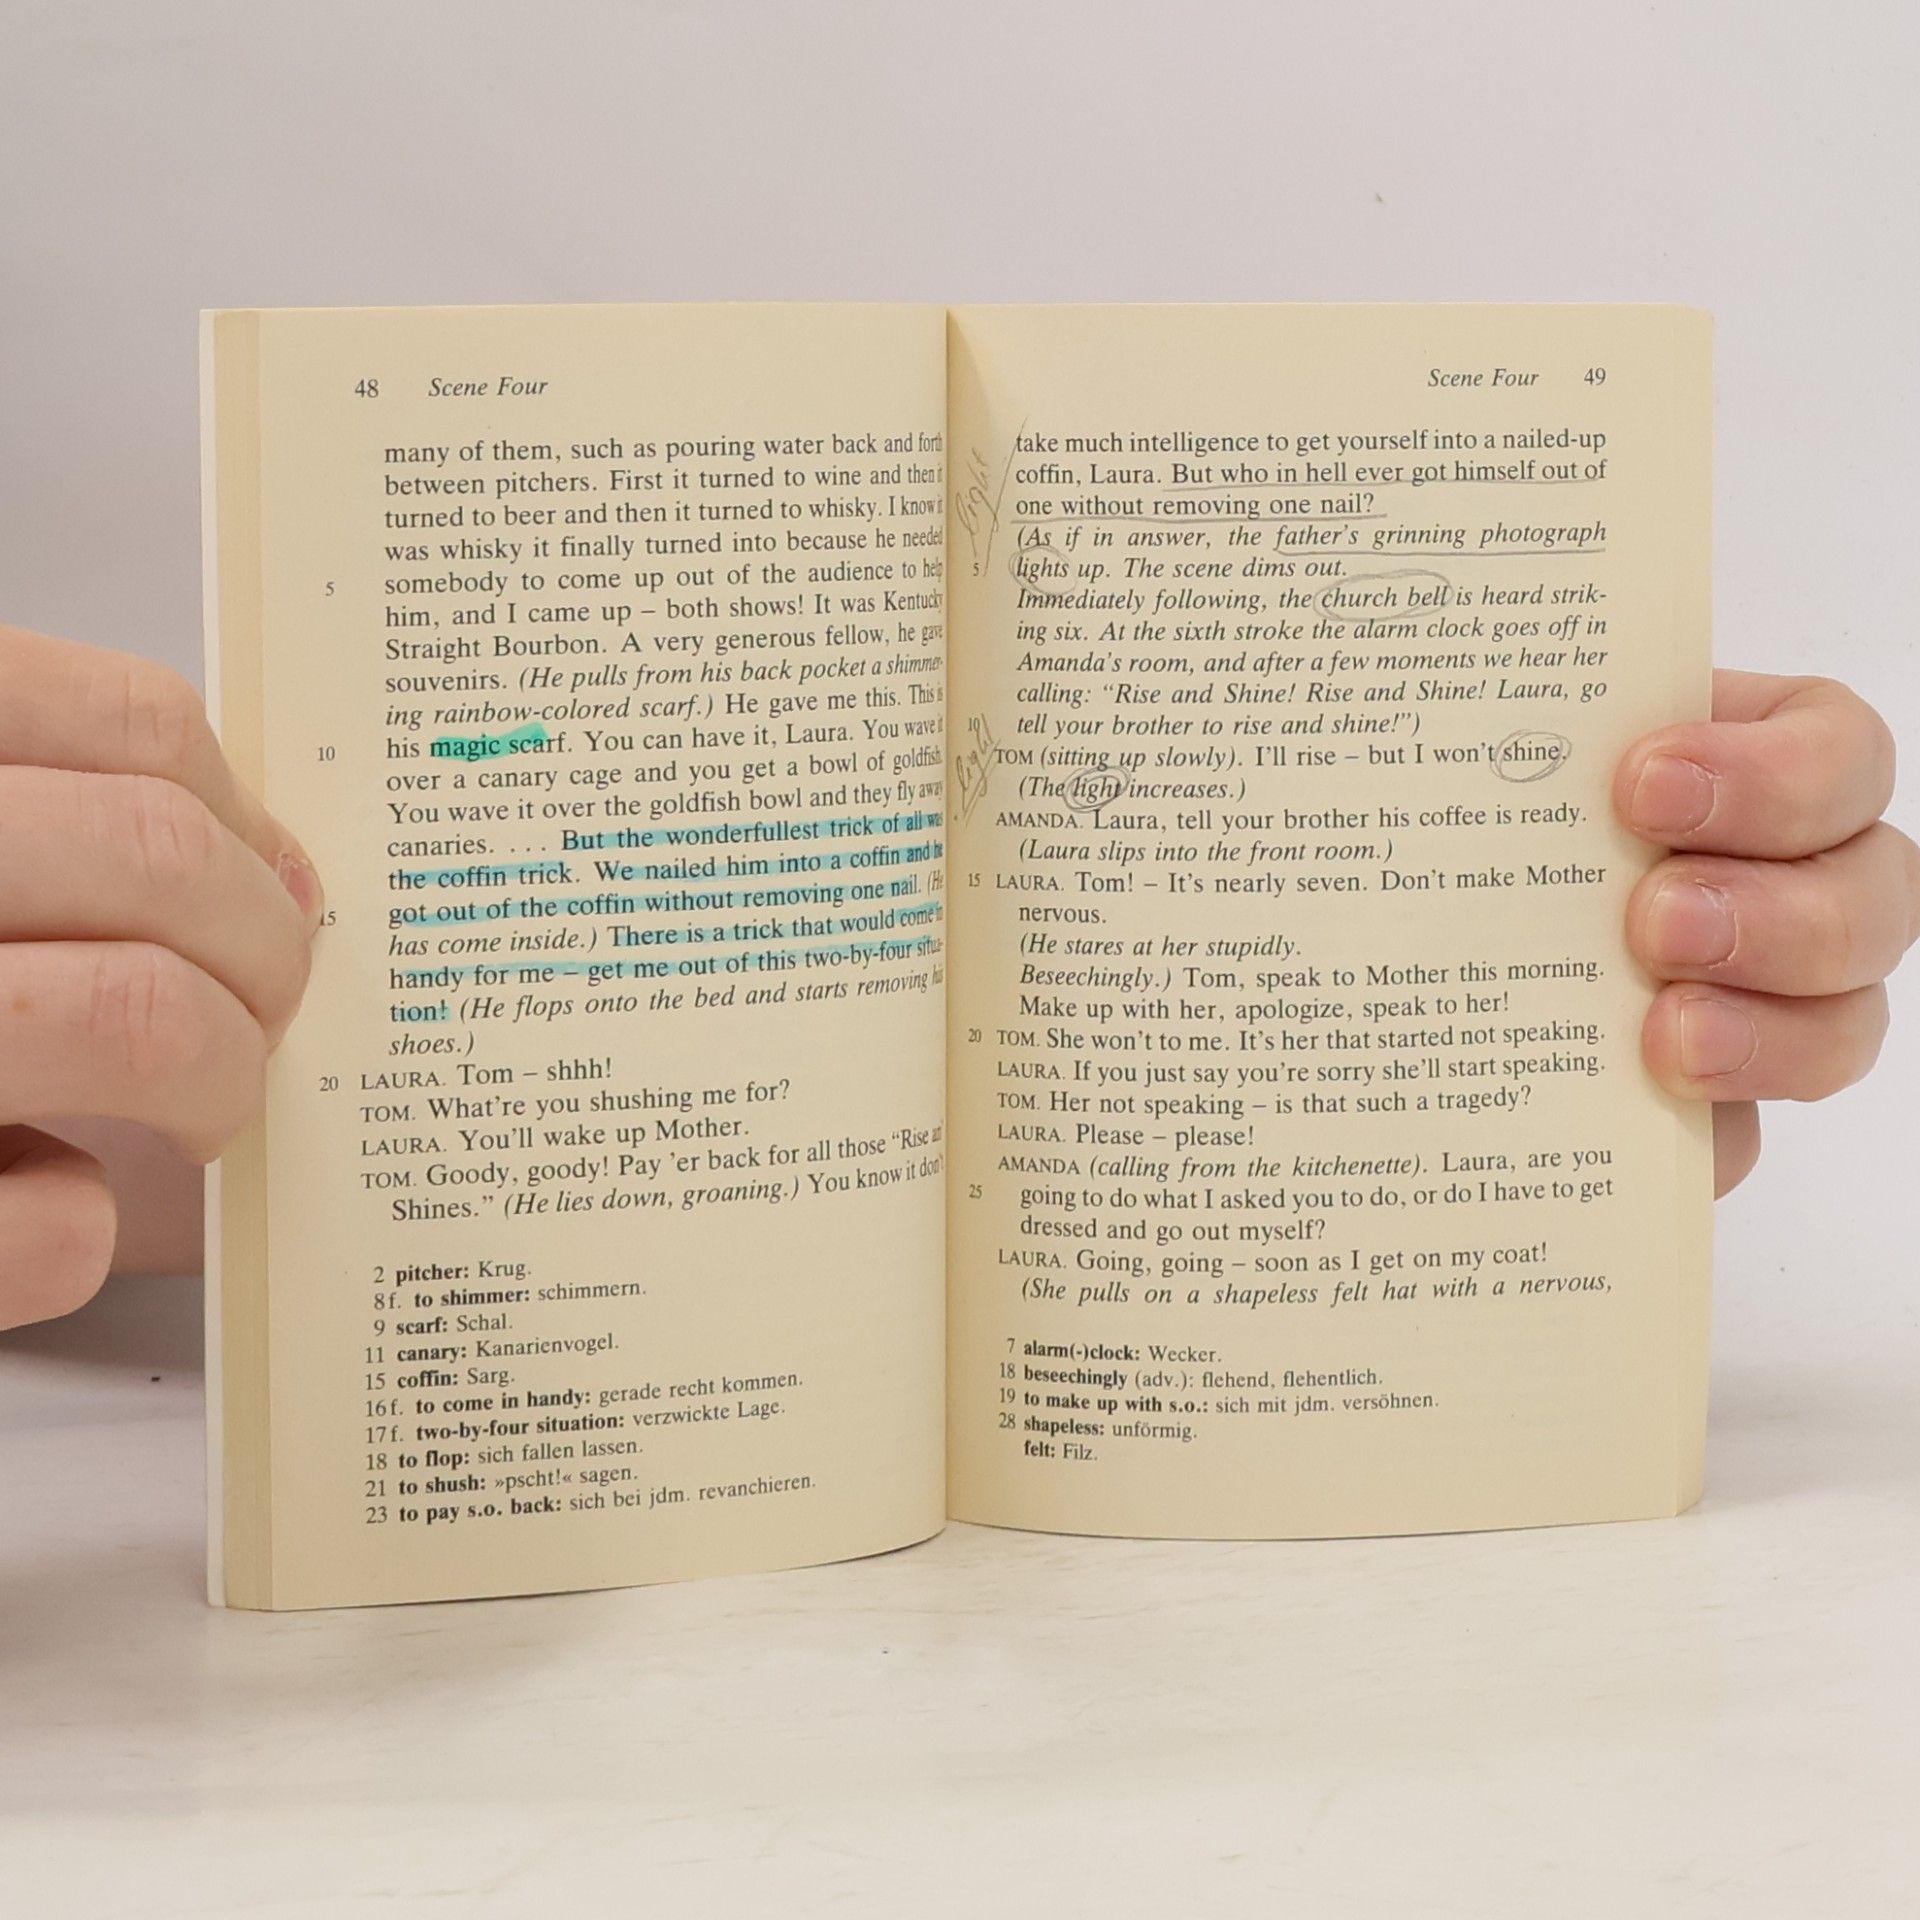 48 Scene Four
many of them, such as pouring water back and forth
between pitchers. First it turned to wine and then it
turned to beer and then it turned to whisky. I know it
was whisky it finally turned into because he needed
5 somebody to come up out of the audience to help
him, and I came up – both shows! It was Kentucky
Straight Bourbon. A very generous fellow, he gave
souvenirs. (He pulls from his back pocket a shimmer-
ing rainbow-colored scarf.) He gave me this. This is
10 his magic scarf. You can have it, Laura. You wave it
over a canary cage and you get a bowl of goldfish.
You wave it over the goldfish bowl and they fly away
canaries. . . . But the wonderfullest trick of all was
the coffin trick. We nailed him into a coffin and he
15 got out of the coffin without removing one nail. (He
has come inside.) There is a trick that would come in
handy for me – get me out of this two-by-four situa-
tion! (He flops onto the bed and starts removing his
shoes.)
20 LAURA. Tom – shhh!
TOM. What're you shushing me for?
LAURA. You'll wake up Mother.
TOM. Goody, goody! Pay 'er back for all those “Rise an'
Shines.” (He lies down, groaning.) You know it don't
2 pitcher: Krug.
8f. to shimmer: schimmern.
9 scarf: Schal.
11 canary: Kanarienvogel.
15 coffin: Sarg.
16f. to come in handy: gerade recht kommen.
17f. two-by-four situation: verzwickte Lage.
18 to flop: sich fallen lassen.
21 to shush: »pscht!« sagen.
23 to pay s.o. back: sich bei jdm. revanchieren.
Scene Four 49
take much intelligence to get yourself into a nailed-up
coffin, Laura. But who in hell ever got himself out of
one without removing one nail?
light
(As if in answer, the father's grinning photograph
5 lights up. The scene dims out.
Immediately following, the church bell is heard strik-
ing six. At the sixth stroke the alarm clock goes off in
Amanda's room, and after a few moments we hear her
calling: “Rise and Shine! Rise and Shine! Laura, go
10 tell your brother to rise and shine!”)
light
TOM (sitting up slowly). I'll rise – but I won't shine.
(The light increases.)
AMANDA. Laura, tell your brother his coffee is ready.
(Laura slips into the front room.)
15 LAURA. Tom! – It's nearly seven. Don't make Mother
nervous.
(He stares at her stupidly.
Beseechingly.) Tom, speak to Mother this morning.
Make up with her, apologize, speak to her!
20 TOM. She won't to me. It's her that started not speaking.
LAURA. If you just say you're sorry she'll start speaking.
TOM. Her not speaking – is that such a tragedy?
LAURA. Please – please!
AMANDA (calling from the kitchenette). Laura, are you
25 going to do what I asked you to do, or do I have to get
dressed and go out myself?
LAURA. Going, going – soon as I get on my coat!
(She pulls on a shapeless felt hat with a nervous,
7 alarm(-)clock: Wecker.
18 beseechingly (adv.): flehend, flehentlich.
19 to make up with s.o.: sich mit jdm. versöhnen.
28 shapeless: unförmig.
felt: Filz.